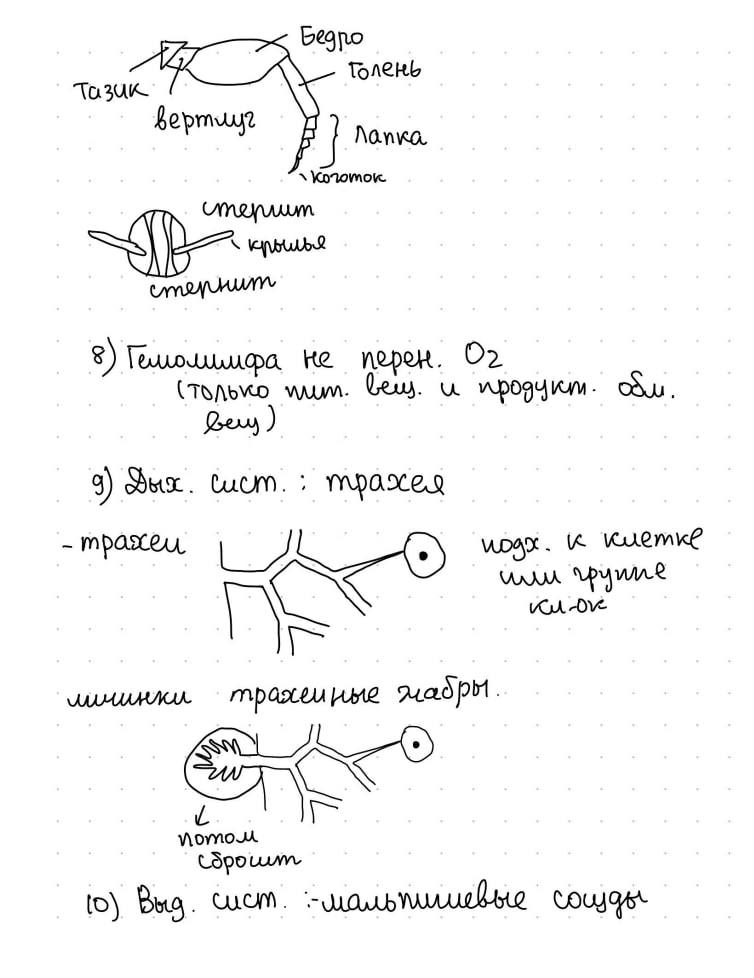 Бедро
Голень
Тазик
вертлуг
Лапка
коготок
стернит
крылья
стернит
8) Гемолимфа не перен. O2
(только пит. вещ. и продукт. обм.
вещ)
9) Дых. сист. : трахея
- трахеи
подх. к клетке
или группе
кл-ок
личинки трахейные жабры.
потом
сбросит
10) Выд. сист. :-мальпигиевые сосуды